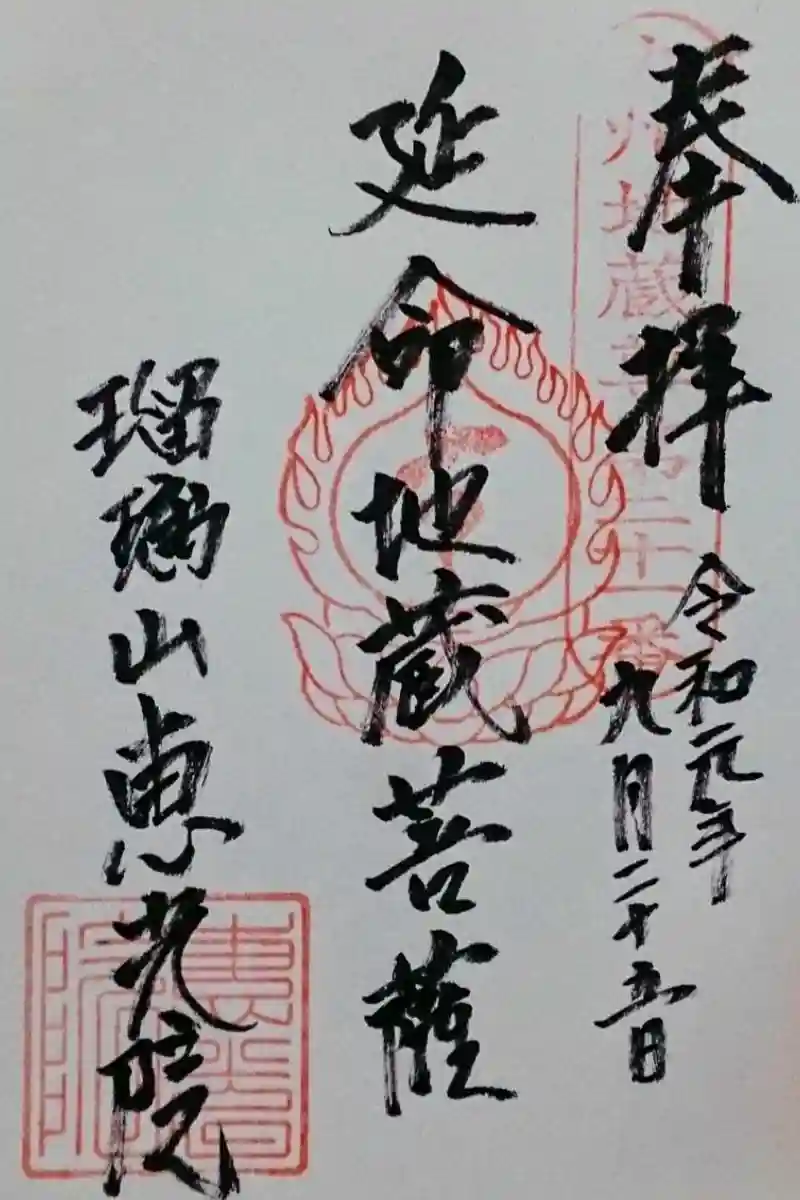 奉拝
令和元年
九月二十五日
州地蔵尊第三十一番
延命地蔵菩薩
瑠璃山恵光院